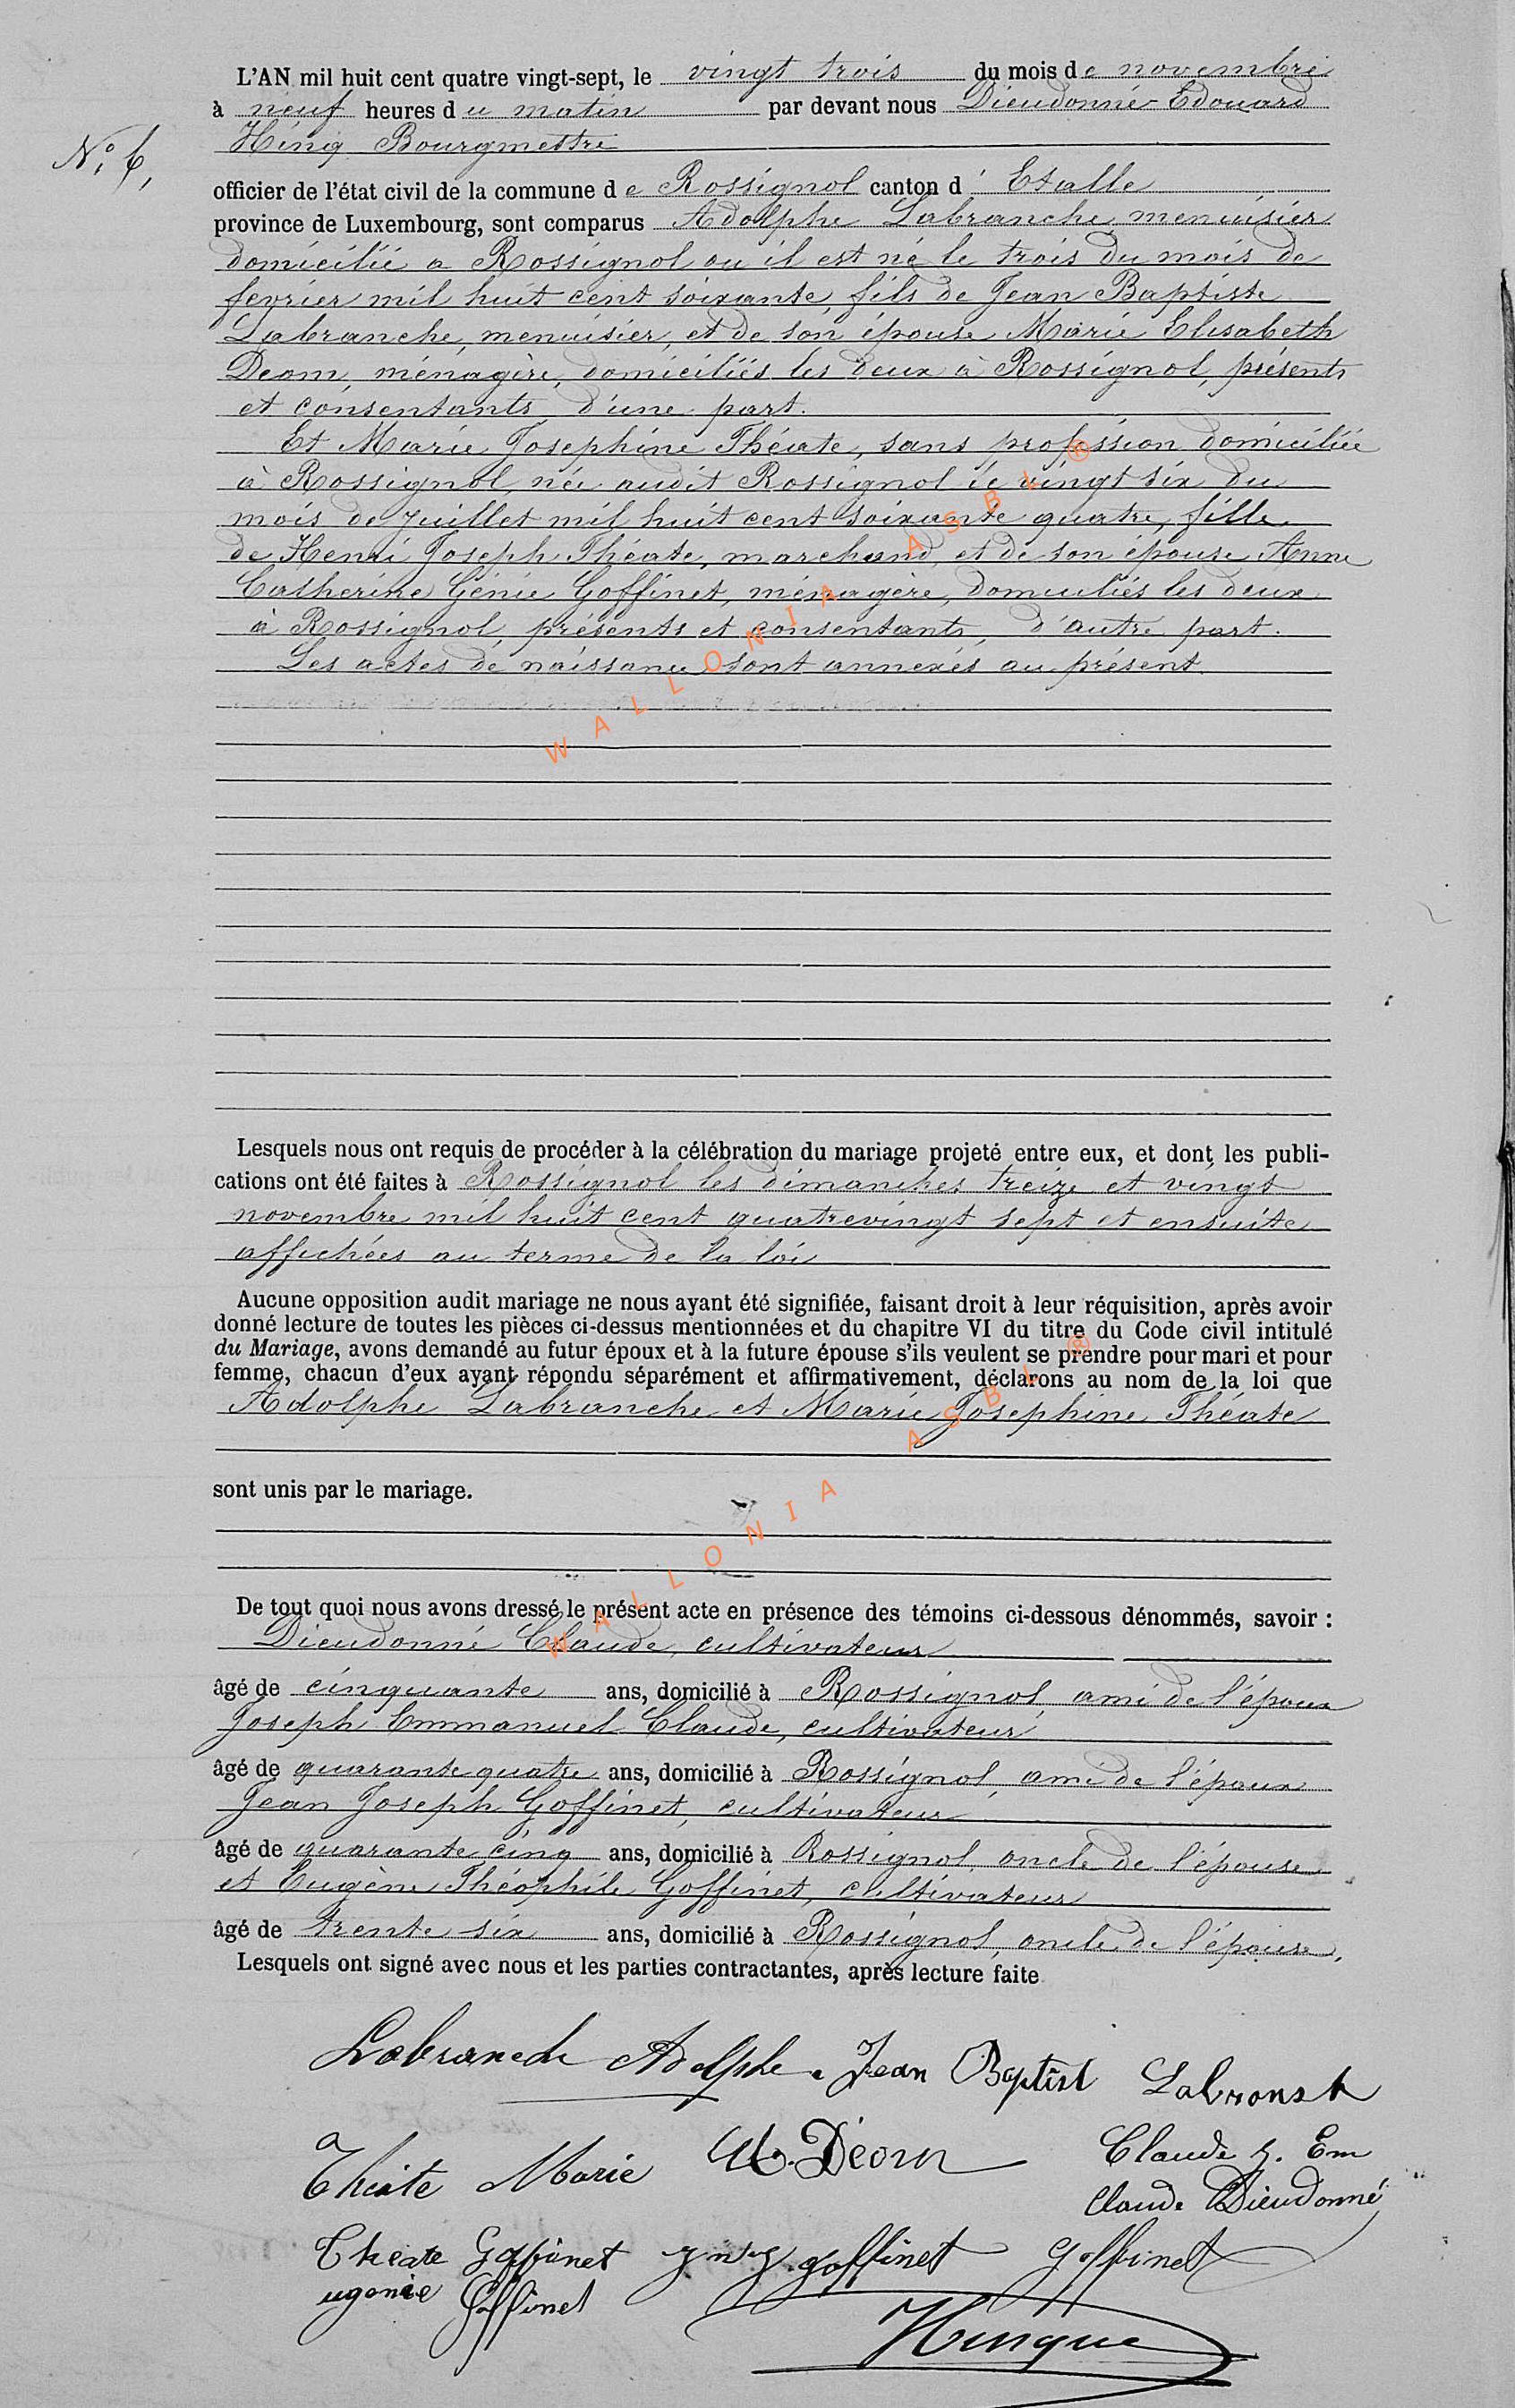 L'AN mil huit cent quatre vingt-sept, le vingt trois du mois de novembre
à neuf heures du matin par devant nous Dieudonné Edouard
Hinq Bourgmestre
N° 6,
officier de l'état civil de la commune de Rossignol canton d' Etalle
province de Luxembourg, sont comparus Adolphe Labranche, menuisier
domicilié a Rossignol ou il est né le trois du mois de
fevrier mil huit cent soixante, fils de Jean Baptiste
Labranche, menuisier, et de son épouse Marie Elisabeth
Deom, ménagère, domiciliés les deux à Rossignol, présents
et consentants d'une part.
Et Marie Josephine Théate, sans profession domiciliée
à Rossignol, née audit Rossignol le vingt six du
mois de Juillet mil huit cent soixante quatre, fille
de Henri Joseph Théate, marchand, et de son épouse Anne
Catherine Génie Goffinet, ménagère, domiciliés les deux
à Rossignol, présents et consentants, d'autre part.
Les actes de naissance sont annexés au présent.
WALLONIA ASBL ®
Lesquels nous ont requis de procéder à la célébration du mariage projeté entre eux, et dont les publi-
cations ont été faites à Rossignol les dimanches treize et vingt
novembre mil huit cent quatrevingt sept et ensuite
affichées au terme de la loi
Aucune opposition audit mariage ne nous ayant été signifiée, faisant droit à leur réquisition, après avoir
donné lecture de toutes les pièces ci-dessus mentionnées et du chapitre VI du titre du Code civil intitulé
du Mariage, avons demandé au futur époux et à la future épouse s'ils veulent se prendre pour mari et pour
femme, chacun d'eux ayant répondu séparément et affirmativement, déclarons au nom de la loi que
Adolphe Labranche et Marie Josephine Théate
sont unis par le mariage.
WALLONIA ASBL ®
De tout quoi nous avons dressé le présent acte en présence des témoins ci-dessous dénommés, savoir :
Dieudonné Claude, cultivateur
âgé de cinquante ans, domicilié à Rossignol, ami de l'époux
Joseph Emmanuel Claude, cultivateur
âgé de quarante quatre ans, domicilié à Rossignol, ami de l'époux
Jean Joseph Goffinet, cultivateur
âgé de quarante cinq ans, domicilié à Rossignol, oncle de l'épouse
et Eugène Théophile Goffinet, cultivateur
âgé de trente six ans, domicilié à Rossignol, oncle de l'épouse,
Lesquels ont signé avec nous et les parties contractantes, après lecture faite
Labranche Adolphe Jean Baptist Labransh
Théate Marie Déom Claude J. Em
Claude Dieudonné
Théate Goffinet goffinet Goffinet
ugenie Goffinet
Hinque